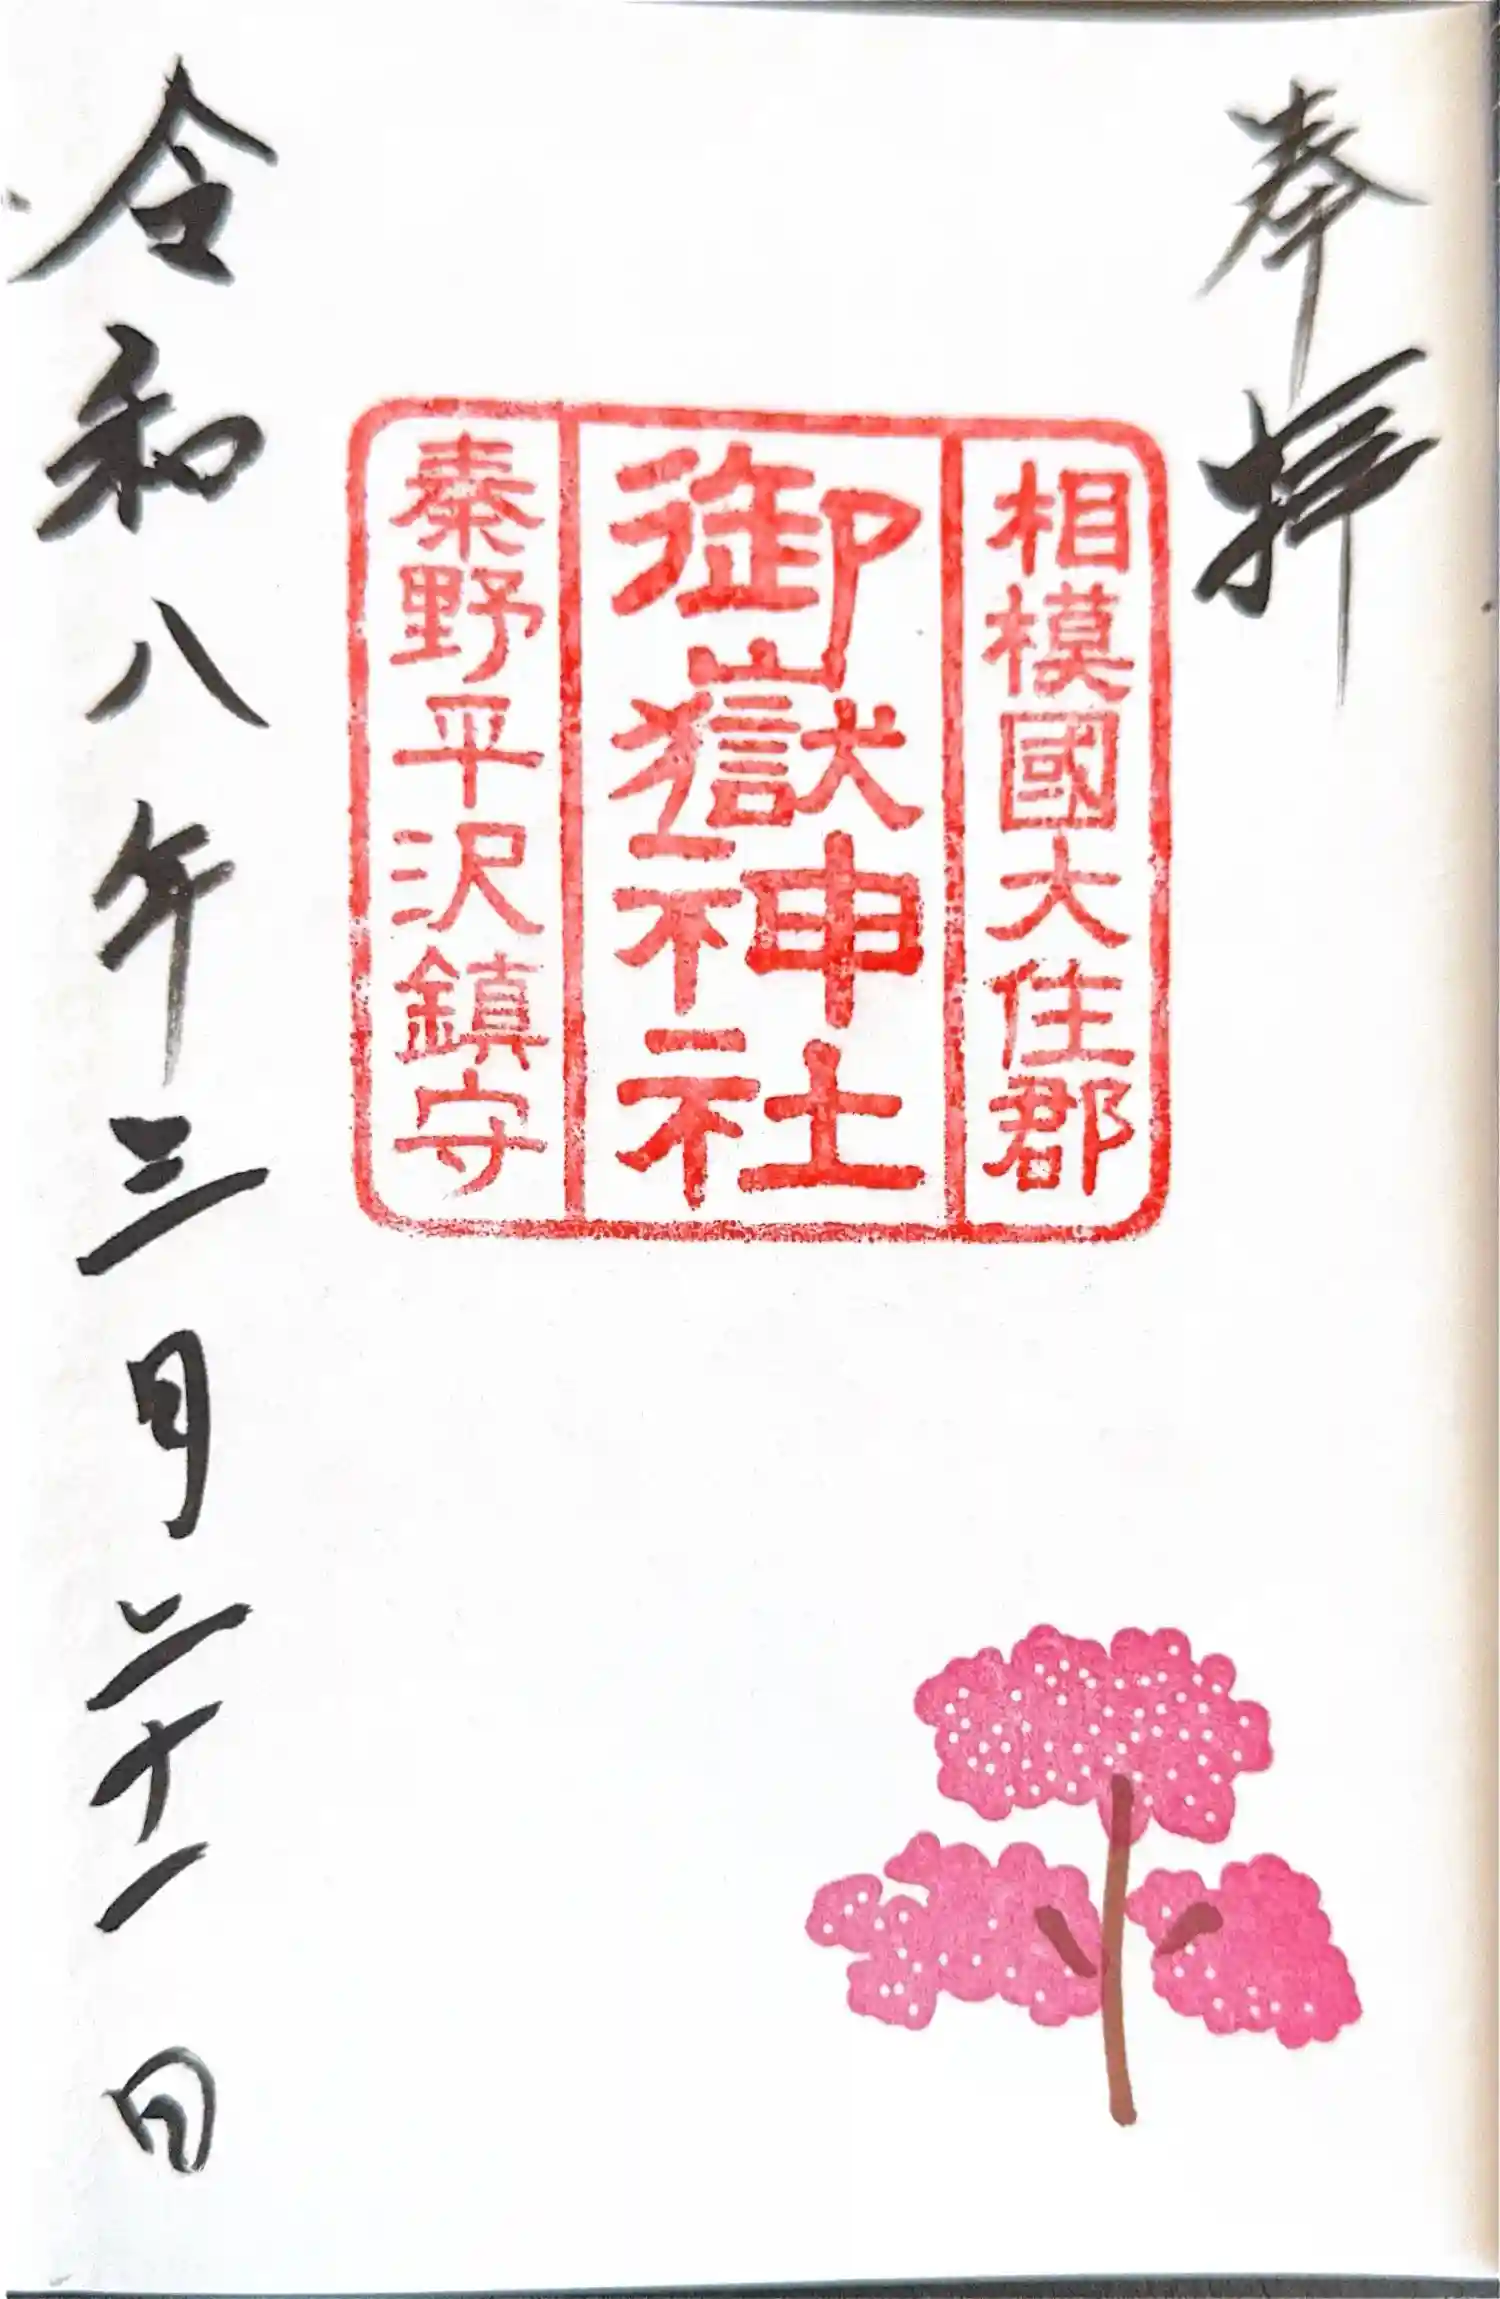 奉拝
相模國大住郡
御嶽神社
秦野平沢鎮守
令和八年三月二十一日